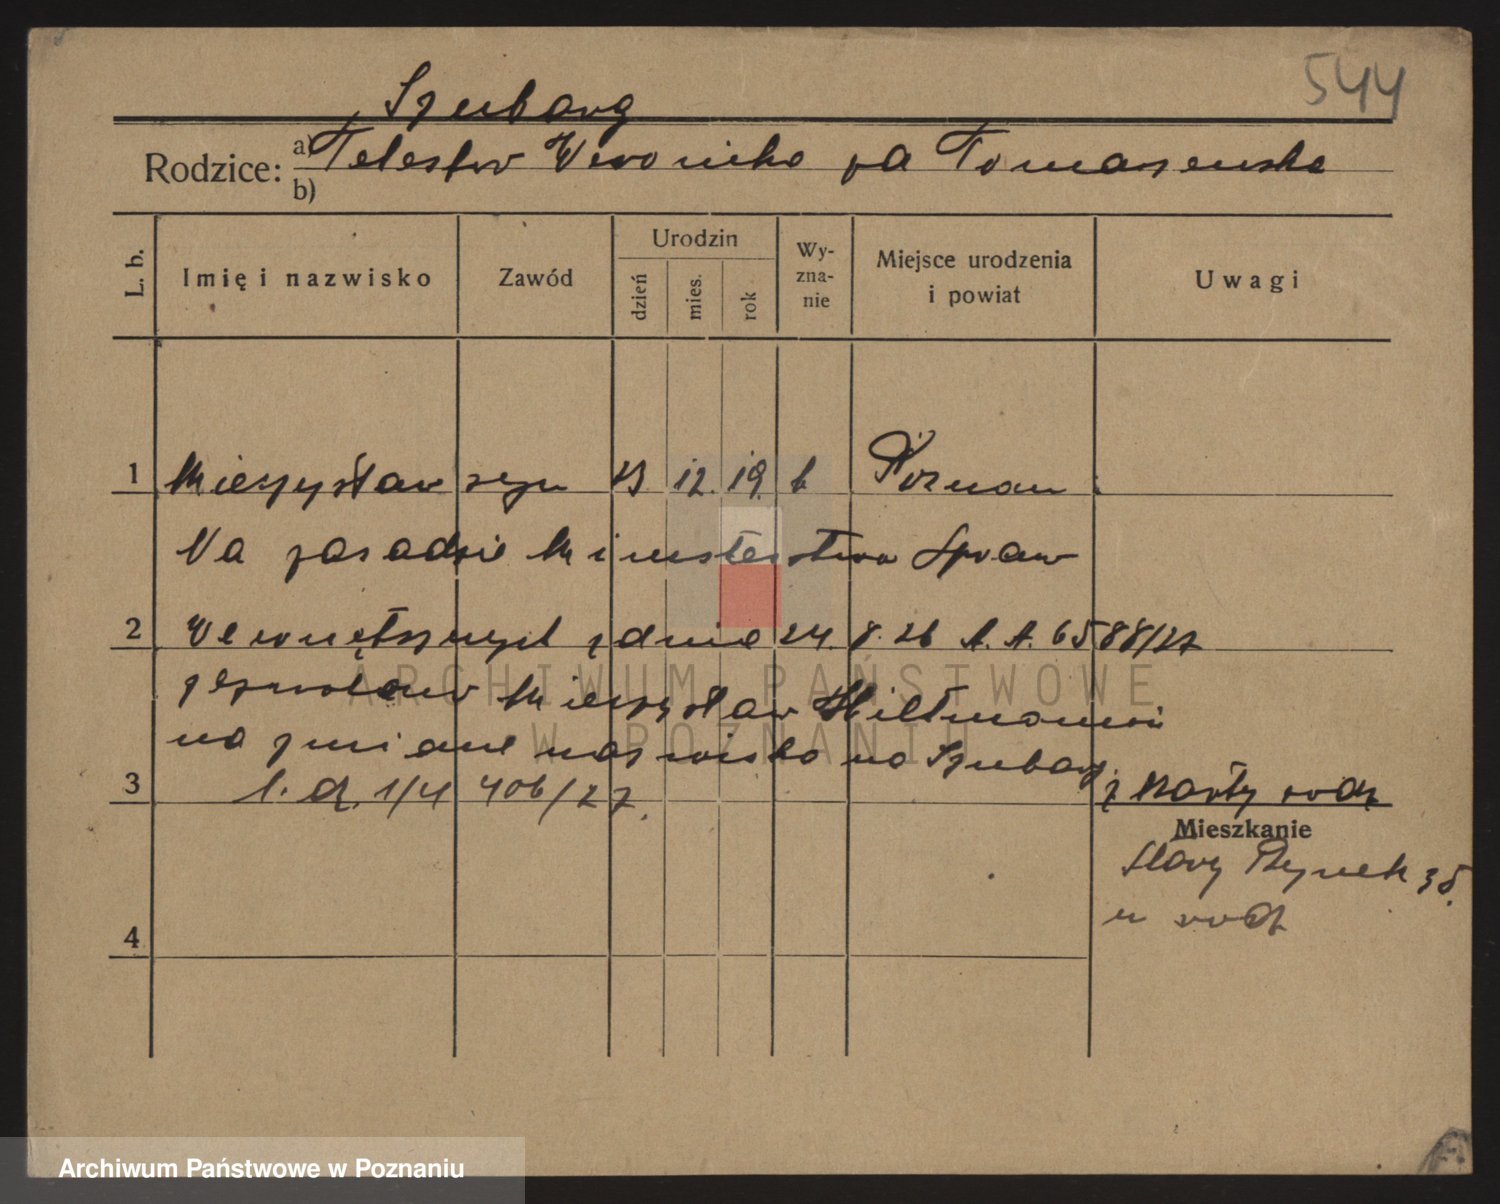 544
Szubarg
Rodzice: a) Telesfor Weronika zd Tomaszewska
b)
L. b. Imię i nazwisko Zawód Urodzin dzień mies. rok Wy-zna-nie Miejsce urodzenia i powiat Uwagi
1 Mieczysław syn 12. 19. k Poznań
Na zasadzie Ministerstwa Spraw
2 Wewnętrznych z dnia 24. 8. 26 A. A. 6588/27
zezwolono Mieczysław
na zmianę nazwiska na Szubarg
3 l. dz. 1/4 406/27. z karty rodz
Mieszkanie
Stary Rynek 38.
u rodz
4
ARCHIWUM PAŃSTWOWE
W POZNANIU
Archiwum Państwowe w Poznaniu